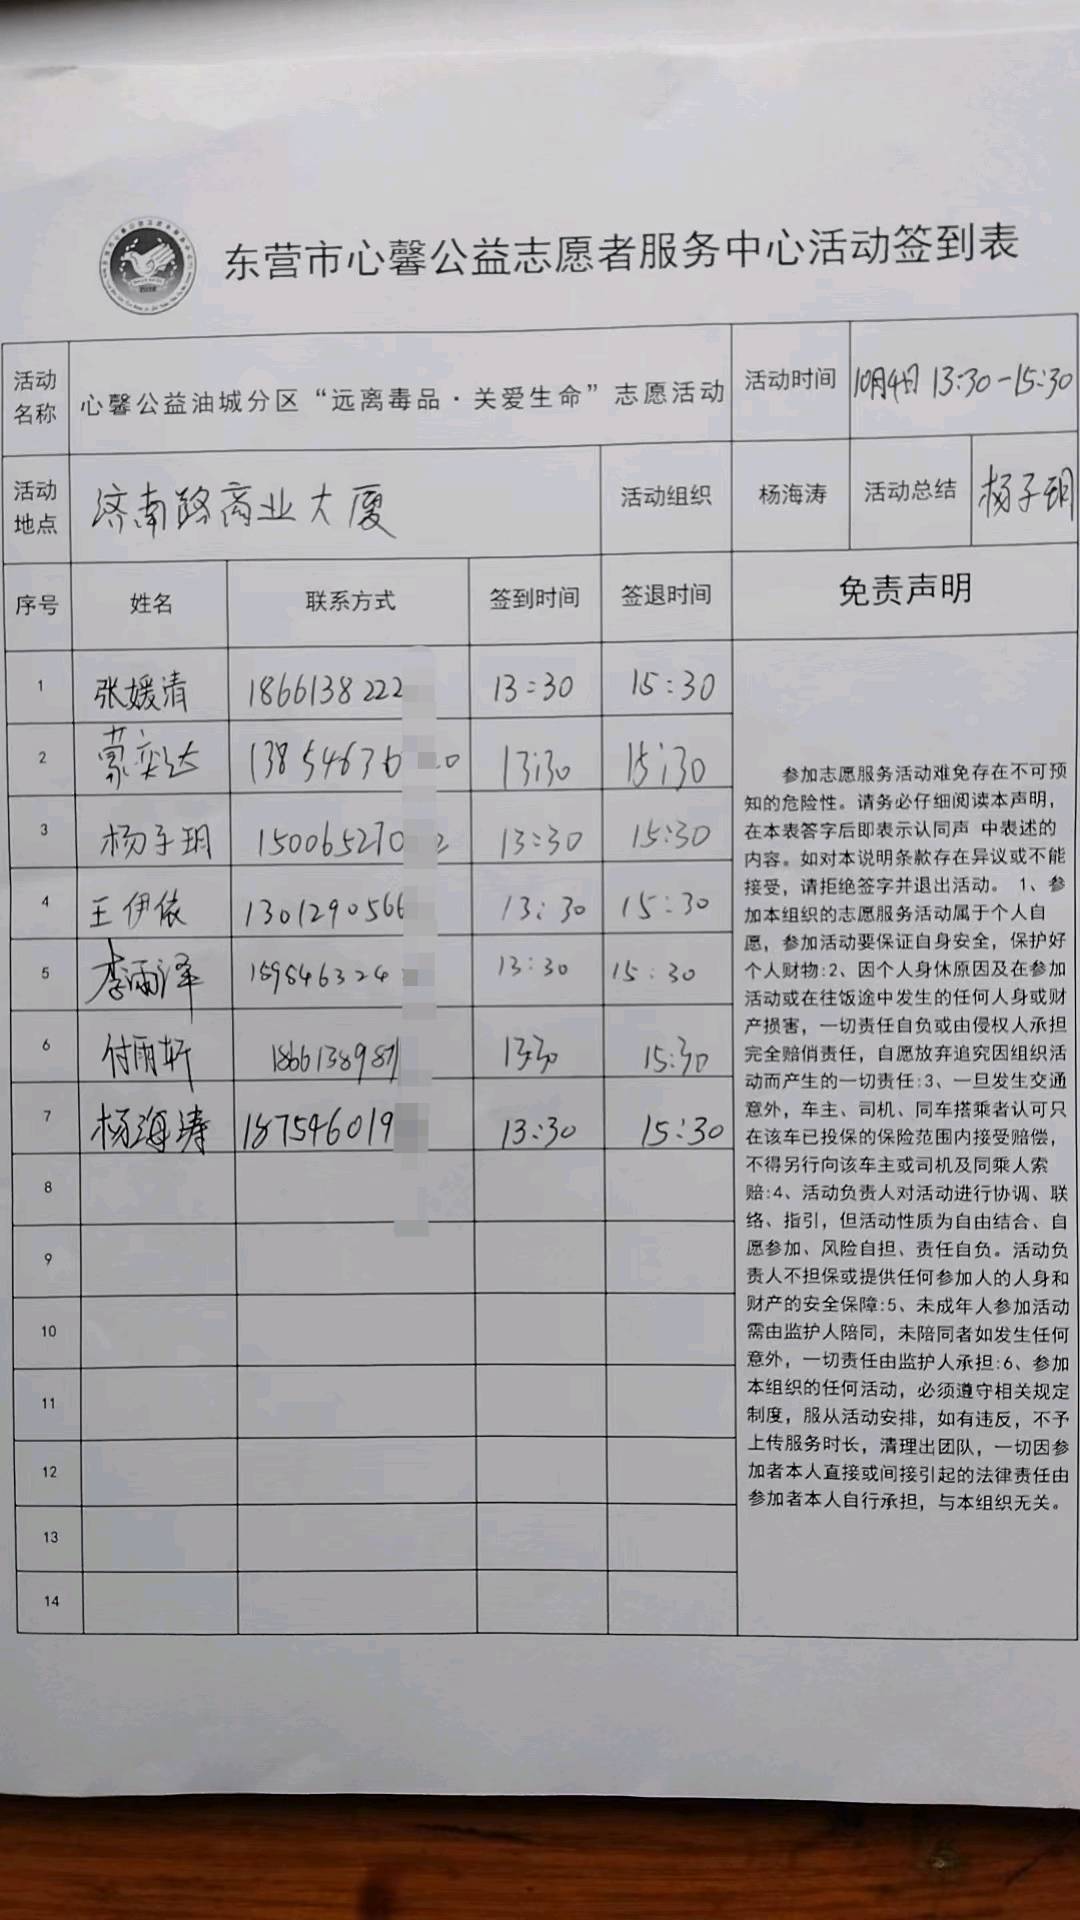 东营市心馨公益志愿者服务中心活动签到表
活动名称 心馨公益油城分区“远离毒品·关爱生命”志愿活动 活动时间 10月4日 13:30-15:30
活动地点 济南路商业大厦 活动组织 杨海涛 活动总结 杨子玥
序号 姓名 联系方式 签到时间 签退时间 免责声明
1 张媛清 1866138222 13:30 15:30
2 蒙奕达 138546376 0 13:30 15:30
3 杨子玥 150065270 2 13:30 15:30
4 王伊依 1301290566 13:30 15:30
5 李雨泽 189846324 13:30 15:30
6 付雨轩 1866138987 13:30 15:30
7 杨海涛 187546019 13:30 15:30
8
9
10
11
12
13
14
参加志愿服务活动难免存在不可预
知的危险性。请务必仔细阅读本声明，
在本表答字后即表示认同声 中表述的
内容。如对本说明条款存在异议或不能
接受，请拒绝签字并退出活动。 1、参
加本组织的志愿服务活动属于个人自
愿，参加活动要保证自身安全，保护好
个人财物:2、因个人身休原因及在参加
活动或在往饭途中发生的任何人身或财
产损害，一切责任自负或由侵权人承担
完全赔俏责任，自愿放弃追究因组织活
动而产生的一切责任:3、一旦发生交通
意外，车主、司机、同车搭乘者认可只
在该车已投保的保险范围内接受赔偿，
不得另行向该车主或司机及同乘人索
赔:4、活动负责人对活动进行协调、联
络、指引，但活动性质为自由结合、自
愿参加、风险自担、责任自负。活动负
责人不担保或提供任何参加人的人身和
财产的安全保障:5、未成年人参加活动
需由监护人陪同，未陪同者如发生任何
意外，一切责任由监护人承担:6、参加
本组织的任何活动，必须遵守相关规定
制度，服从活动安排，如有违反，不予
上传服务时长，清理出团队，一切因参
加者本人直接或间接引起的法律责任由
参加者本人自行承担，与本组织无关。